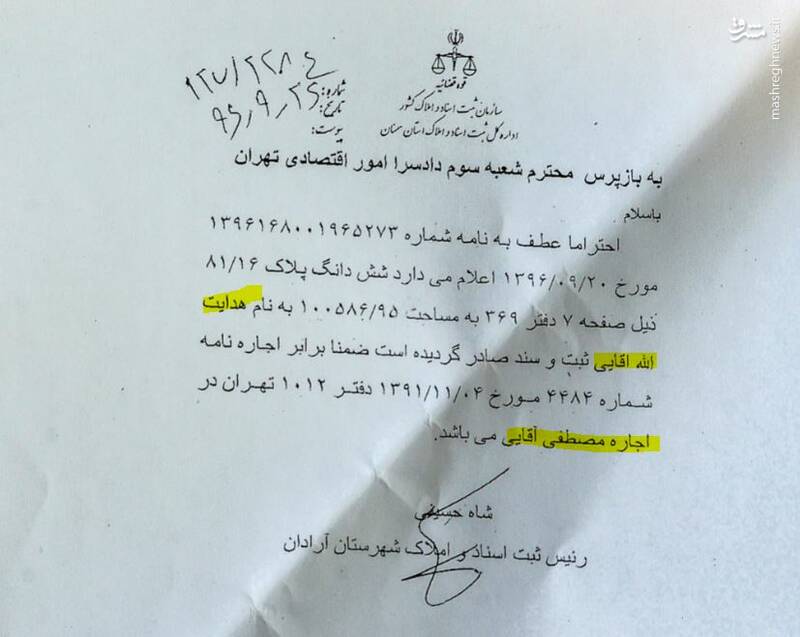 مشرق
mashreghnews.ir
قوه قضائیه
سازمان ثبت اسناد و املاک کشور
اداره کل ثبت اسناد و املاک استان سمنان
شماره: ۱۲۷/۲۲۸۰۴
تاریخ: ۹۶٫۹٫۲۶
پیوست:
به بازپرس محترم شعبه سوم دادسرا امور اقتصادی تهران
باسلام
احتراما عطف به نامه شماره ۱۳۹۶۱۶۸۰۰۱۹۶۵۲۷۳
مورخ ۱۳۹۶/۰۹/۲۰ اعلام می دارد شش دانگ پلاک ۸۱/۱۶
ذیل صفحه ۷ دفتر ۳۶۹ به مساحت ۱۰۰۵۸۶/۹۵ به نام هدایت
الله اقایی ثبت و سند صادر گردیده است ضمنا برابر اجاره نامه
شماره ۴۴۸۴ مورخ ۱۳۹۱/۱۱/۰۴ دفتر ۱۰۱۲ تهران در
اجاره مصطفی آقایی می باشد.
شاه حسینی
رئیس ثبت اسناد و املاک شهرستان آرادان